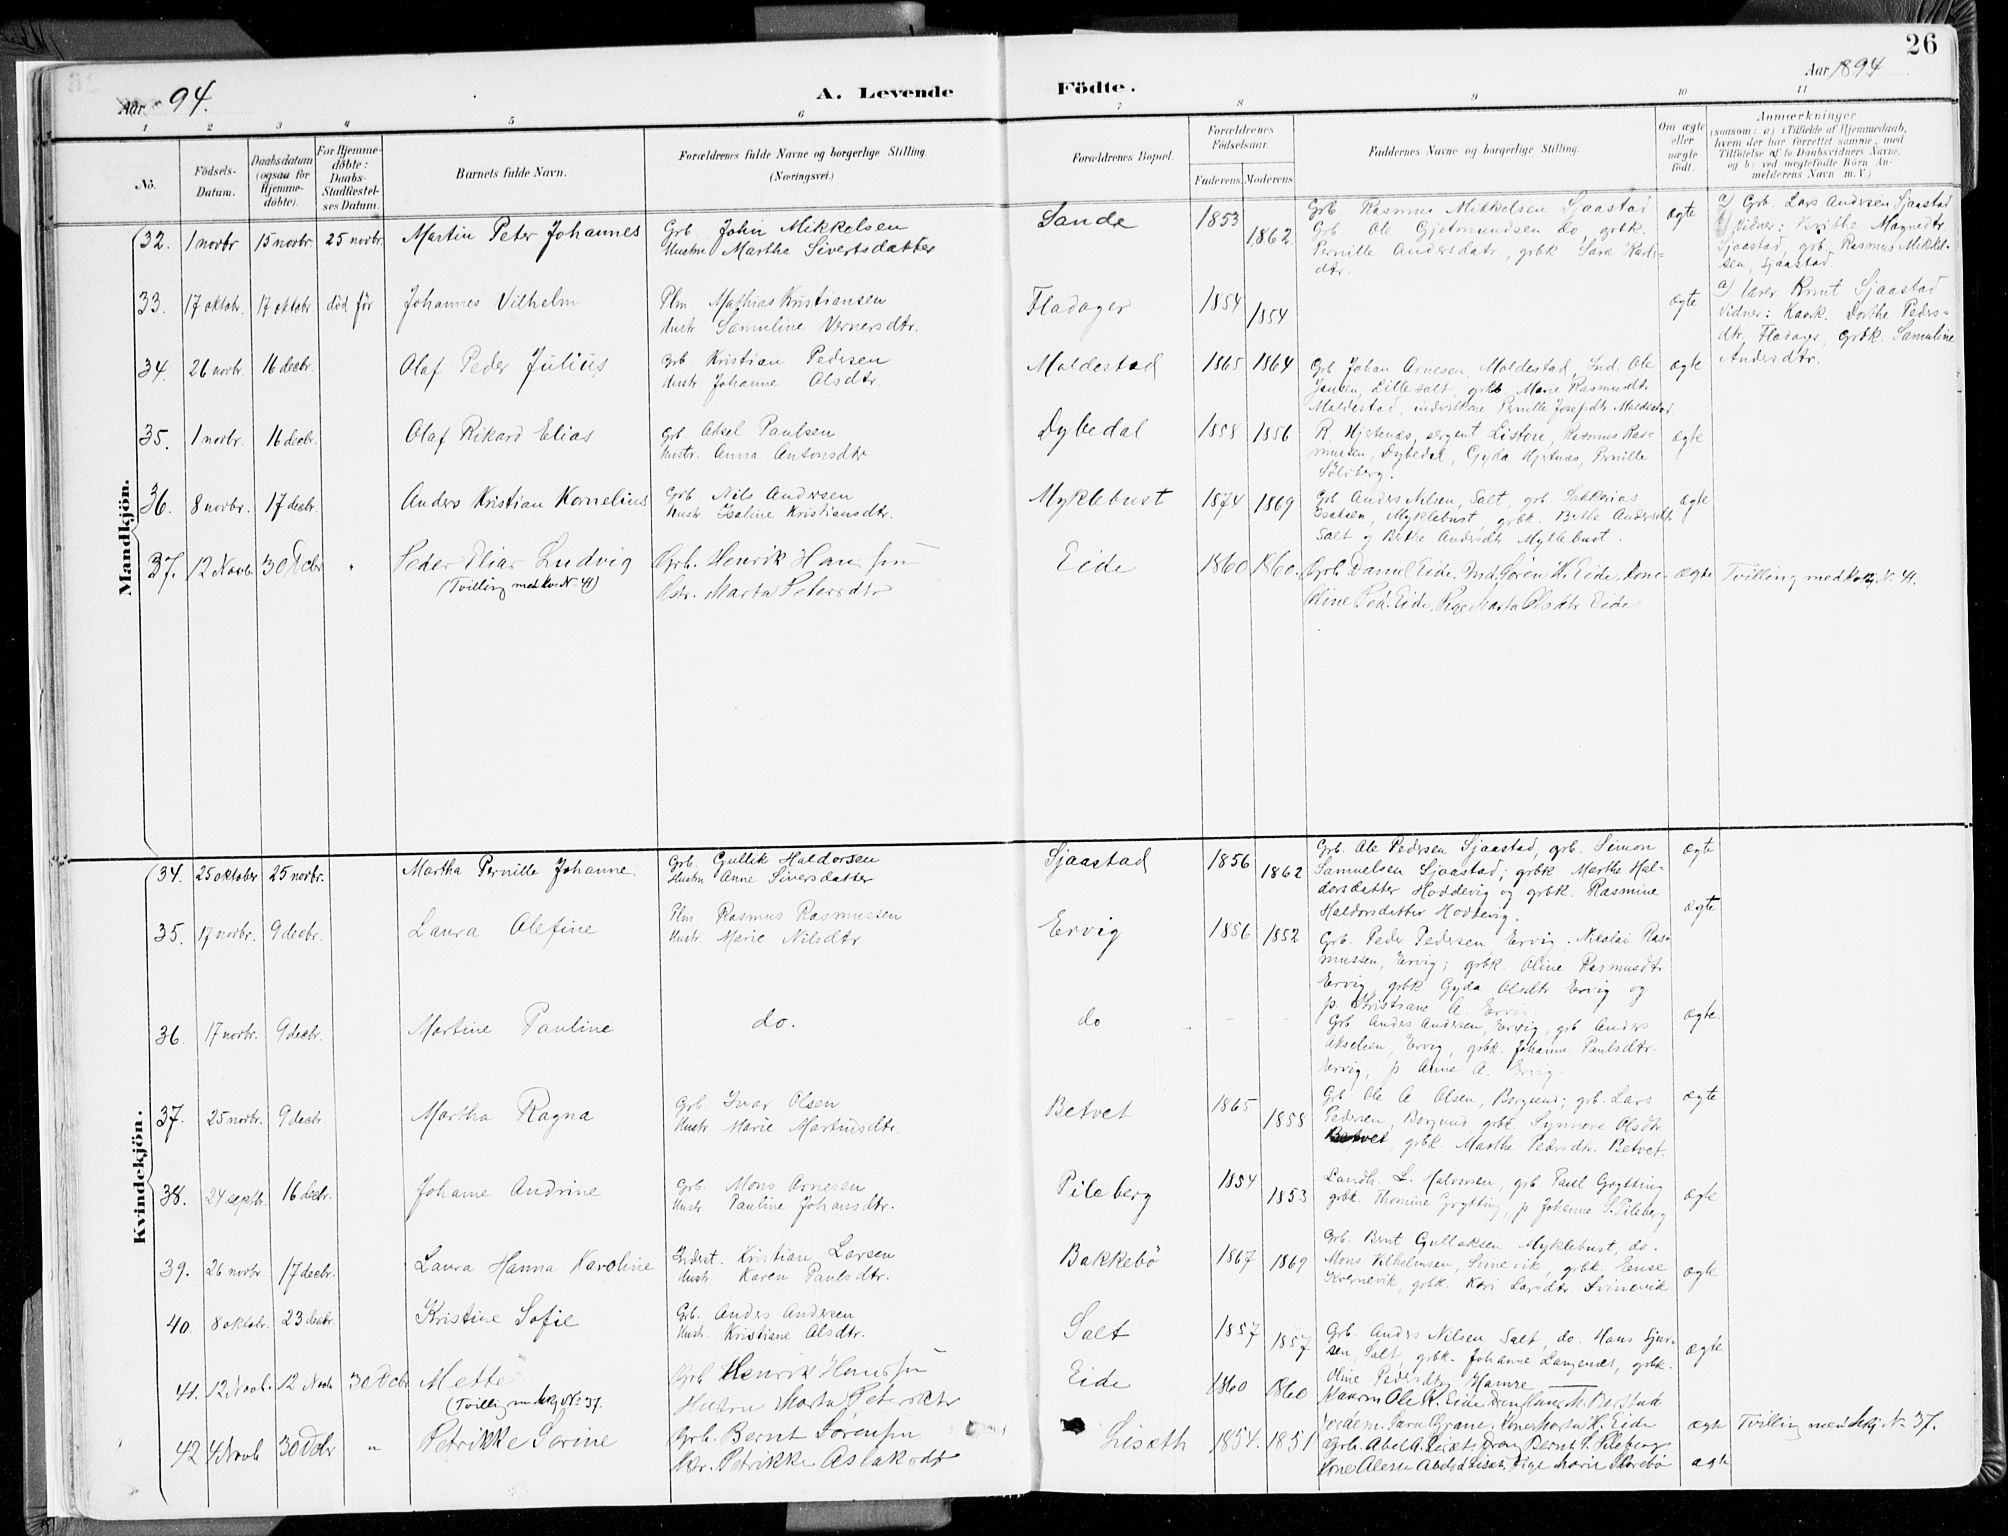 26
Aar 94.
A. Levende Födte.
Aar 1894
1 2 3 4 5 6 7 8 9 10 11
No.
Födsels-Datum.
Daabsdatum (ogsaa for Hjemme-döbte).
For Hjemme-döbte: Daabs-Stadfæstel-ses Datum.
Barnets fulde Navn.
Forældrenes fulde Navne og borgerlige Stilling. (Næringsvei.)
Forældrenes Bopæl.
Forældrenes Födselsaar.
Faderens. Moderens.
Faddernes Navne og borgerlige Stilling.
Om ægte eller uægte födt.
Anmærkninger
(saasom: a) i Tilfælde af Hjemmedaab, hvem der har forrettet samme, med Tilföielse af to Daabsvidners Navne, og b) ved uægtefödte Börn An-melderens Navn m. V.)
Mandkjön.
32. 1 novbr 15 novbr. 25 novbr. Martin Peter Johannes Grb. John Mikkelsen Sande 1853 1862. Grb. Rasmus Mikkelsen Sjaastad ægte a) Grb. Lars Andersen Sjaastad
Hustru Martha Sivertsdatter Grb. Ole Gjetmundsen do, grbk. Vidner: Berithe Magnedtr
Pernille Andersdatr, grbk Sara Karls- Sjaastad, grb. Rasmus Mikkel-
dtr. sen, Sjaastad.
33. 17 oktobr. 17 oktobr død før Johannes Vilhelm Plm. Mathias Kristiansen Fladager 1854 1854 ægte a) lærer Knut Sjaastad
Hustr. Samuline Vernersdtr. Vidner: Kaark. Dorthe Peders-
dtr. Fladager, Grbk. Samuline
Andersdtr.
34. 26 novbr. 16 decbr. Olaf Peder Julius Grb Kristian Pedersen Maldestad 1865 1864 Grb Johan Arnesen, Maldestad, Ind. Ole ægte
Hustr Johanne Olsdtr. Jansen, Lillesalt, grbk Marie Rasmusdtr
Maldestad, inderstkone Pernille Josefsdtr Maldestad.
35. 1 novbr. 16 decbr. Olaf Rikard Elias Grb. Aksel Paulsen Dybedal 1858 1856 R. Hjertenæs, sergent Listou, Rasmus Ras- ægte
Hustr. Anna Antonsdtr mussen, Dybedal, Gyda Hjertnæs, Pernille
Silsberg.
36. 8 novbr. 17 decbr. Anders Kristian Kornelius Grb. Nils Andersen Myklebust 1874 1869 Grb Anders Nilsen, Salt, grb Sakkerias ægte
Hustr. Isaline Kristiansdtr. Isaksen, Myklebust, grbk. Berthe Andersdtr
Salt og Berthe Andersdtr Myklebust.
37. 12 Novb. 30 Dcbr " Peder Elias Ludvig Grb. Henrik Hanssøn Eide 1860 1860. Grb. Daniel Eide, Ind. Søren H. Eide, Kone ægte Tvilling med Kv. No 41.
(Tvilling med kv. No 41) Hstr. Marta Petersdtr Oline Ped. Eide, Pige Marta Olsdtr Eide
Kvindekjön.
34. 25 oktober 25 novbr. Martha Pernille Johanne Grb. Gullik Haldorsen Sjaastad 1856 1862 Grb. Ole Pedersen Sjaastad, grb. Simon ægte
Hustru Anne Siversdatter Samuelsen Sjaastad; grbk Marthe Hal-
dorsdatter Hoddevig og grbk. Rasmine
Haldorsdatter Hoddevig.
35. 17 novbr. 9 decbr. Laura Olefine Plm. Rasmus Rasmussen Ervig 1856 1852 ægte
Hustr. Marie Nilsdtr. Grb. Peder Pedersen Ervig, Nikolai Ras-
mussen, Ervig; grbk. Oline Rasmusdtr.
Ervig, grbk Gyda Olsdtr. Ervig og
p. Kristiane A. Ervig.
36. 17 novbr. 9 decbr. Martine Pauline do. do - - - Grb. Anders Andersen, Ervig, grb Anders ægte
Akselsen, Ervig, grbk. Johanne Paulsdtr.
Ervig, p. Anne A. Ervig.
37. 25 novbr. 9 decbr. Martha Ragna Grb. Ivar Olsen Betvet 1865 1858 Grb Ole A. Olsen, Borgund; grb. Lars ægte
Hustr Marie Martinsdtr. Pedersen, Borgund, grbk. Synneve Olsdtr
Betvet, grbk. Marthe Pedersdtr. Betvet.
38. 24 septbr. 16 decbr. Johanne Andrine Grb. Mons Arnesen Pileberg 1854 1853 Landh. L. Halvorsen, grb. Paul Grytting ægte
Hustr. Pauline Johansdtr. grbk. Thomine Grytting, p. Johanne S. Pileberg
39. 26 novbr 17 decbr. Laura Hanna Karoline Inderst. Kristian Larsen Bakkebö 1867 1869 Grb. Bernt Gullaksen Myklebust, do. ægte
Hustr. Karen Paulsdtr. Mons Vilhelmsen, Svinevik, grbk. Ense
Kvernevik, grbk. Kari Larsdtr. Svinevik
40. 8 oktobr. 23 decbr. Kristine Sofie Grb. Anders Andersen Salt 1857 1857 Grb. Anders Nilsen Salt, do. Hans Sjur- ægte
Hustr. Kristiane Olsdtr. sen Salt, grbk. Johanne Langenæs, grbk.
Oline Pedersdtr Hamre
41. 12 Novb. 12 Novb 30 Dcbr Mette Grb Henrik Hanssøn Eide 1860 1860. Kaarm Ole H. Eide, Dreng Hans M. Berstad
(Tvilling m. Mkj No 37. Hustru Marta Petersdtr Jordem. Sara Grane, Kone Marta H. Eide ægte Tvilling med Mkj No 37.
42 4 Novb 30 Dcbr " Petrikke Sorine Grb. Bernt Sørensøn Lisæth 1854. 1851 Grb. Abel A. Lisæt, Dreng Bernt S. Pileberg
Hstr. Petrikke Aslaksdtr Kone Alexse Abelsd Lisæt, Pige Marie Skorebø ægte